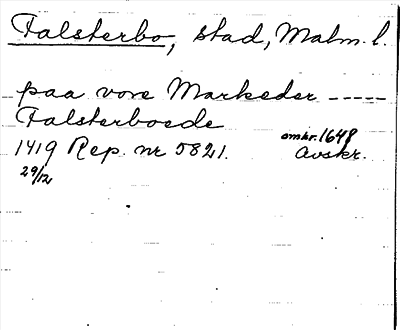 Falsterbo, stad, Malm. l.
paa vore Markeder -----
Falsterboede
1419 Rep. nr 5821. omkr. 1648
29/12 Avskr.